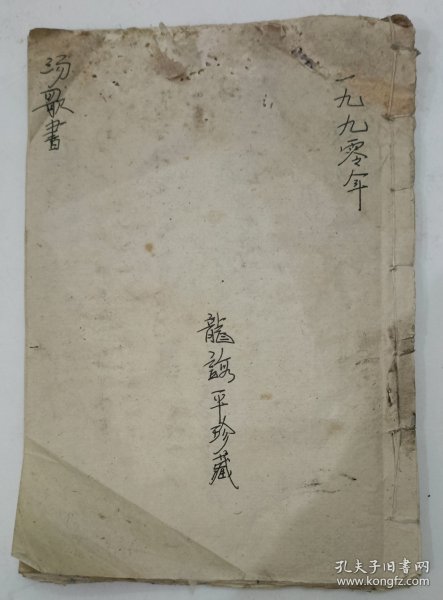 一九九零年
汤歌書
龍謌平珍藏
孔夫子旧书网
www.kongfz.com